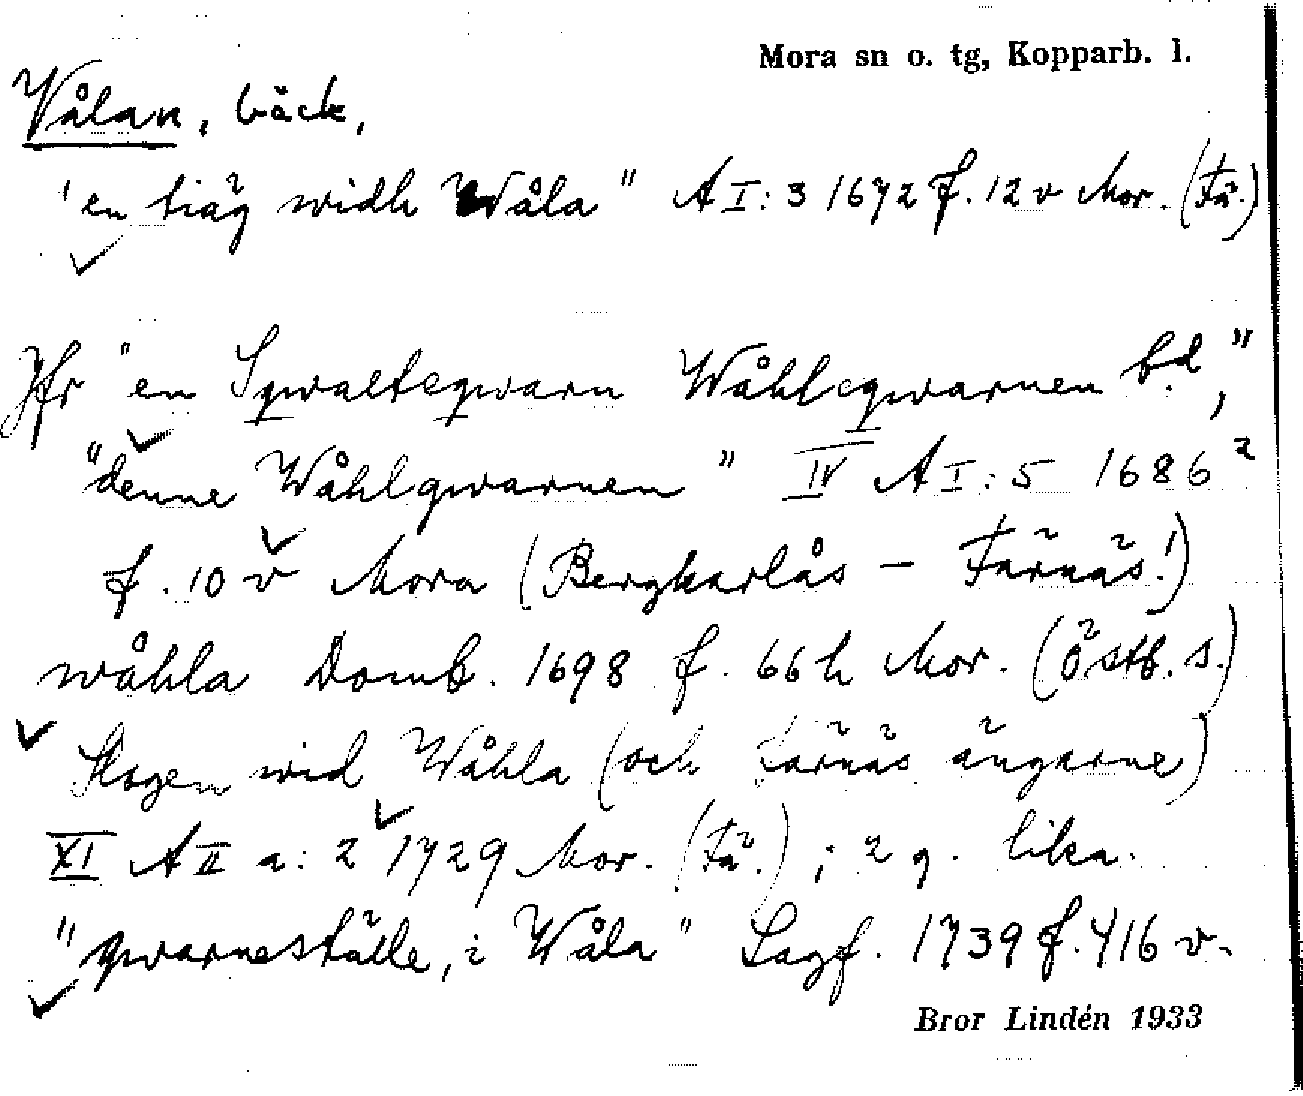 Mora sn o. tg, Kopparb. l.
Vålan, bäck,
"en tiäg widh Wåla" A I: 3 1672 f. 12 v Mor. (Fä.)
Jfr "en Sqwalteqwarn Wåhlqwarnen b.d,"
"denne Wåhlqwarnen" IV A I: 5 1686 2
f. 10 v Mora (Bergkarlås – Färnäs!)
wåhla Domb. 1698 f. 66 h Mor. (Östb. s.)
Skogen wid Wåhla (och Färnäs ängarne)
XI A II a: 2 1729 Mor. (Fä.); 2 g. lika.
"qwarneställe, i Wåla" Lagf. 1739 f. 416 v.
Bror Lindén 1933